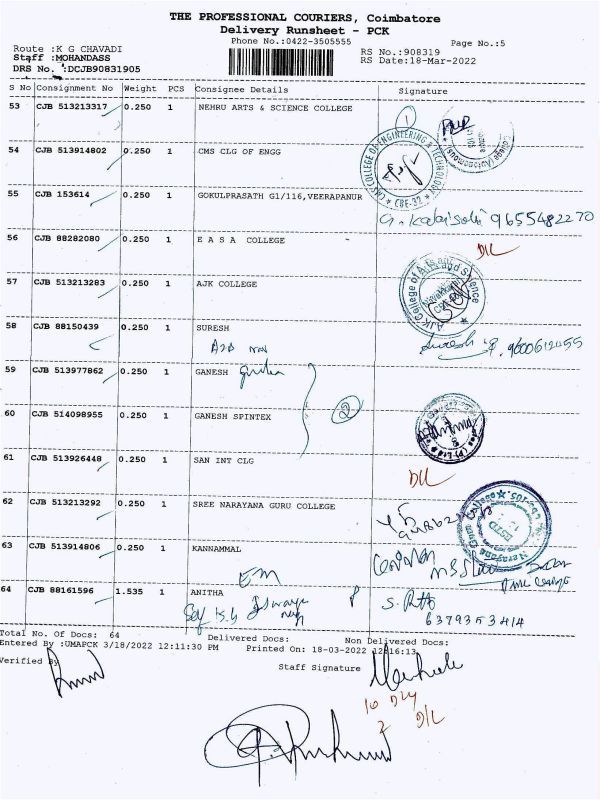 THE PROFESSIONAL COURIERS, Coimbatore
Delivery Runsheet - PCK
Phone No.:0422-3505555
Page No.:5
Route :K G CHAVADI
RS No.:908319
Staff :MOHANDASS
RS Date:18-Mar-2022
DRS No. :DCJB90831905
S No Consignment No Weight PCS Consignee Details Signature
53 CJB 513213317 0.250 1 NEHRU ARTS & SCIENCE COLLEGE
1
54 CJB 513914802 0.250 1 CMS CLG OF ENGG
CMS COLLEGE OF ENGINEERING & TECHNOLOGY ★ CBE-32 ★
55 CJB 153614 0.250 1 GOKULPRASATH G1/116,VEERAPANUR
9655482270
56 CJB 88282080 0.250 1 E A S A COLLEGE
D/L
57 CJB 513213283 0.250 1 AJK COLLEGE
AJK College of Arts and Science
58 CJB 88150439 0.250 1 SURESH
Suresh
59 CJB 513977862 0.250 1 GANESH
2
60 CJB 514098955 0.250 1 GANESH SPINTEX
61 CJB 513926448 0.250 1 SAN INT CLG
D/L
62 CJB 513213292 0.250 1 SREE NARAYANA GURU COLLEGE
63 CJB 513914806 0.250 1 KANNAMMAL
64 CJB 88161596 1.535 1 ANITHA
6379353414
Total No. Of Docs: 64 Delivered Docs: Non Delivered Docs:
Entered By :UMAPCK 3/18/2022 12:11:30 PM Printed On: 18-03-2022 12:16:13
Verified By
Staff Signature
10 Dly
2 D/L